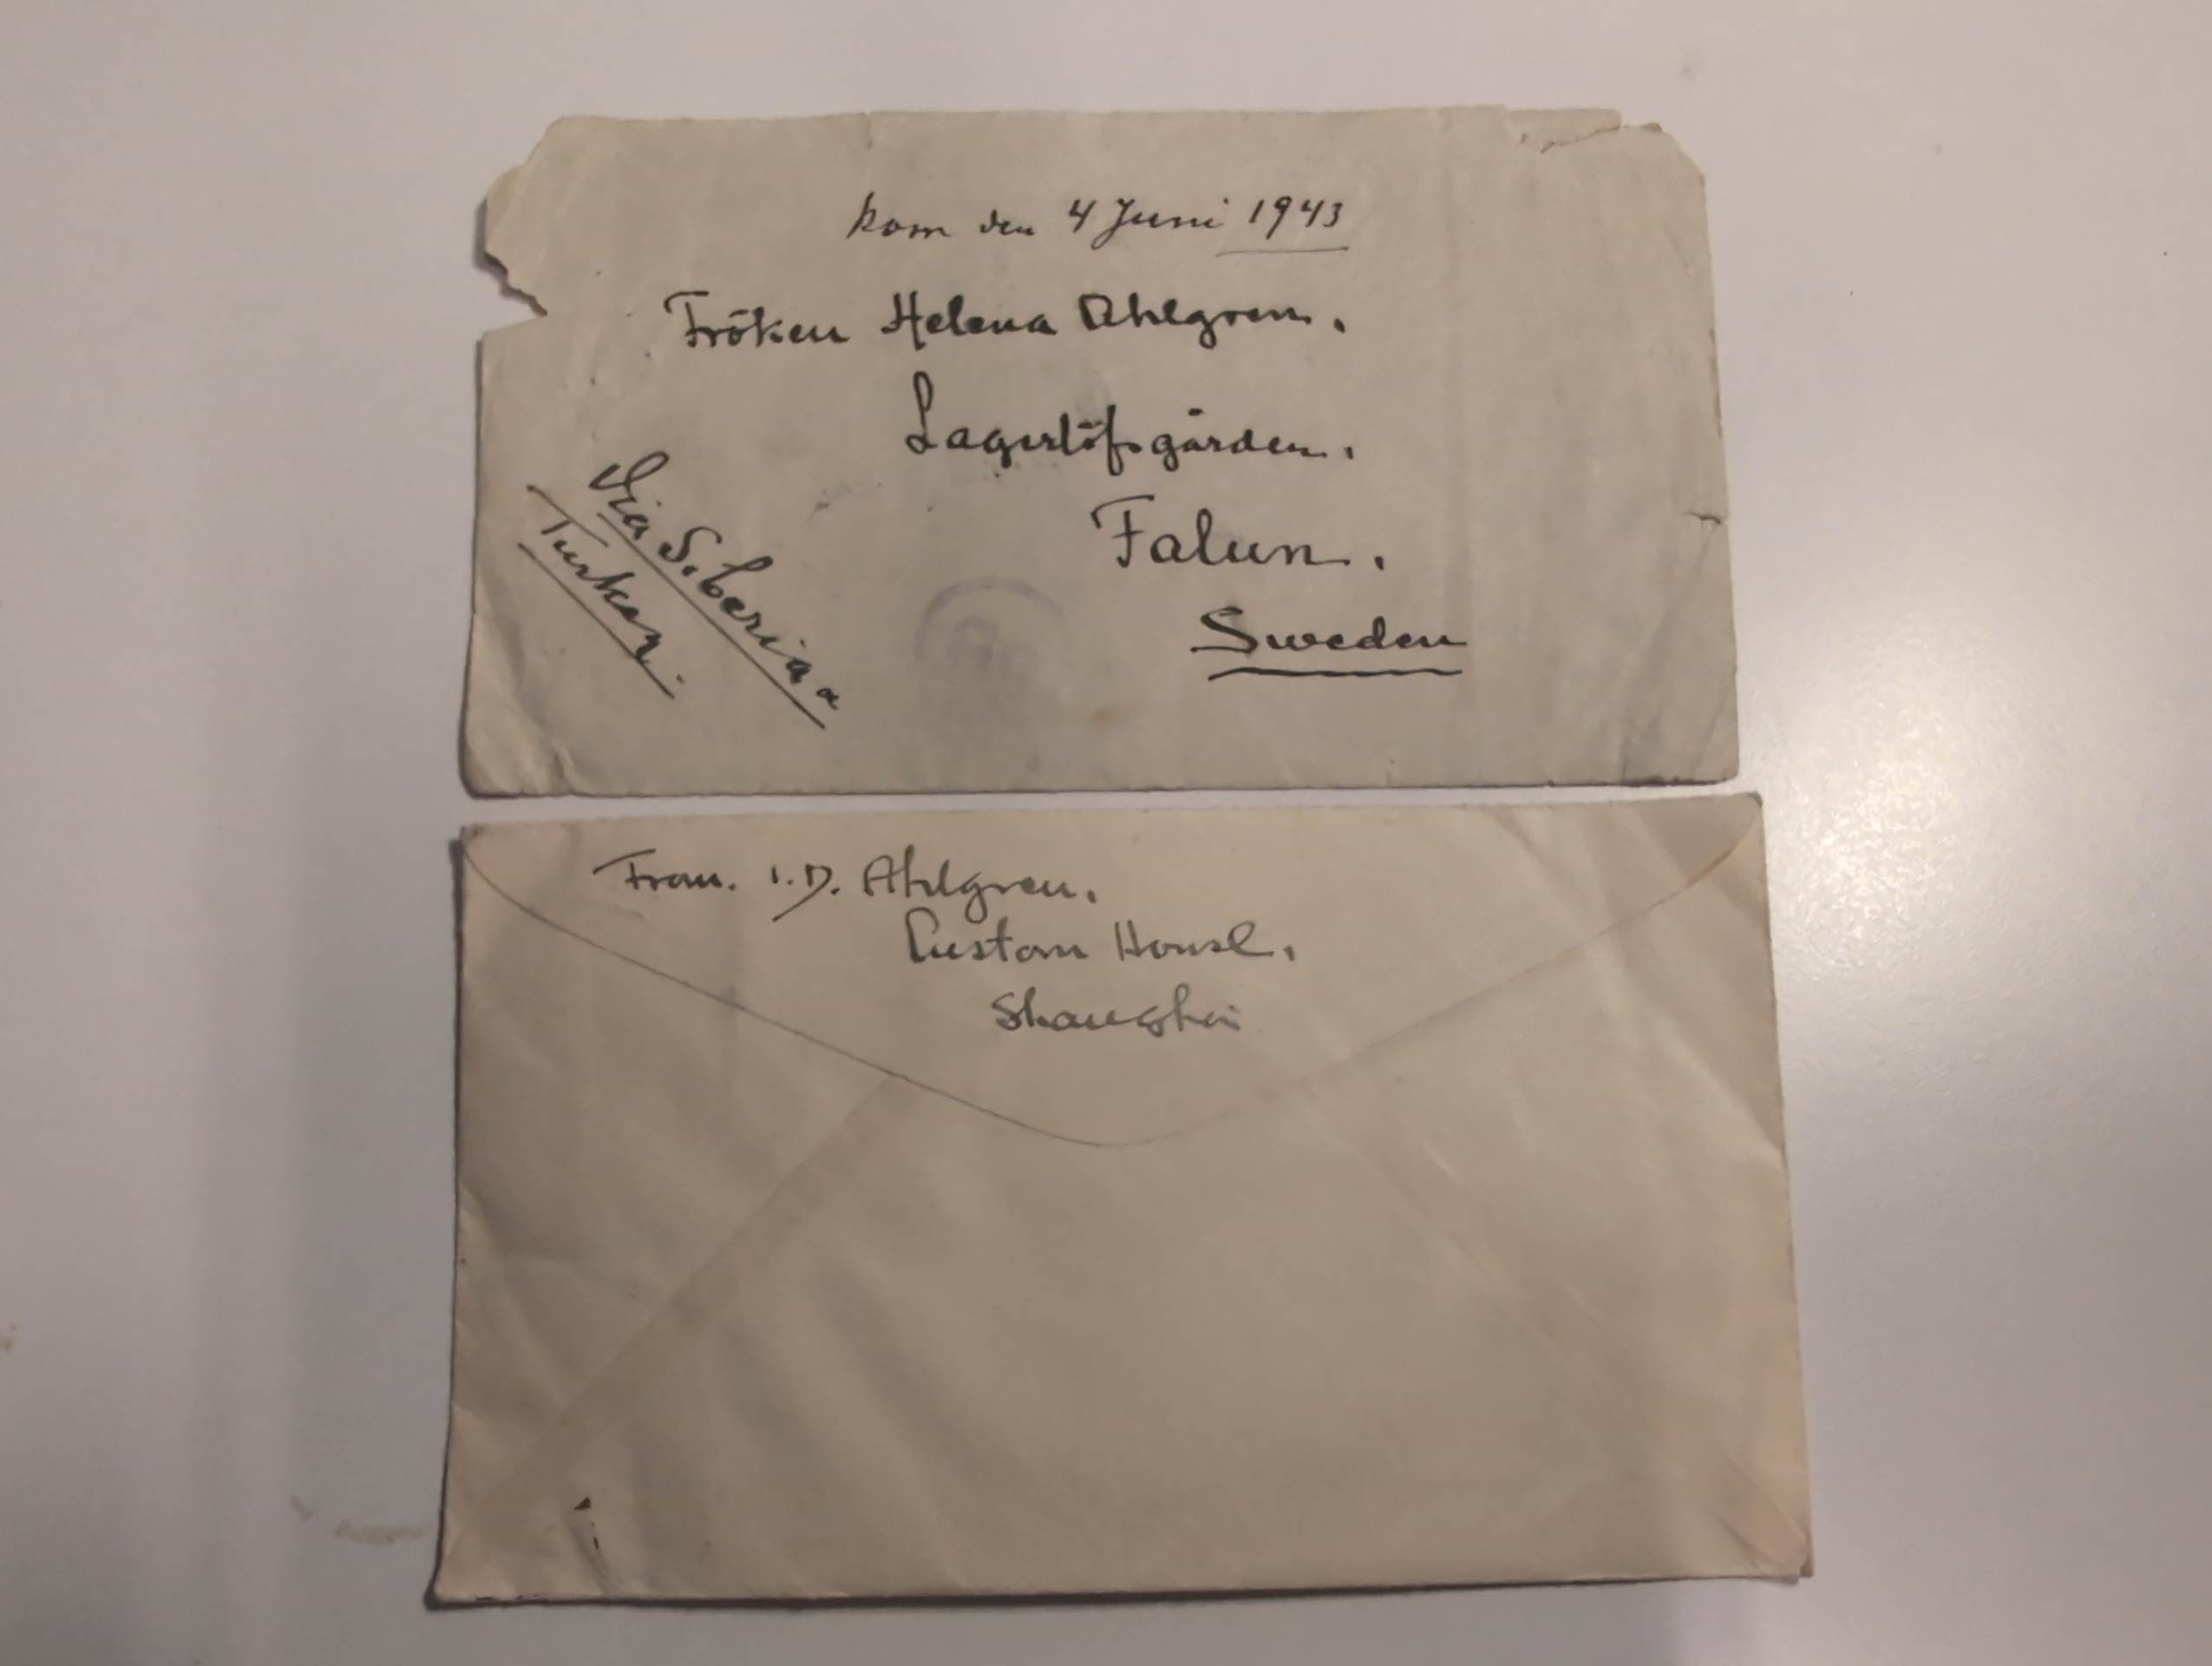 kom den 4 Juni 1943
Fröken Helena Ahlgren.
Lagerlöfsgården.
Falun.
Sweden
Via Siberia &
Turkey.
From. I.D. Ahlgren.
Custom House.
Shanghai